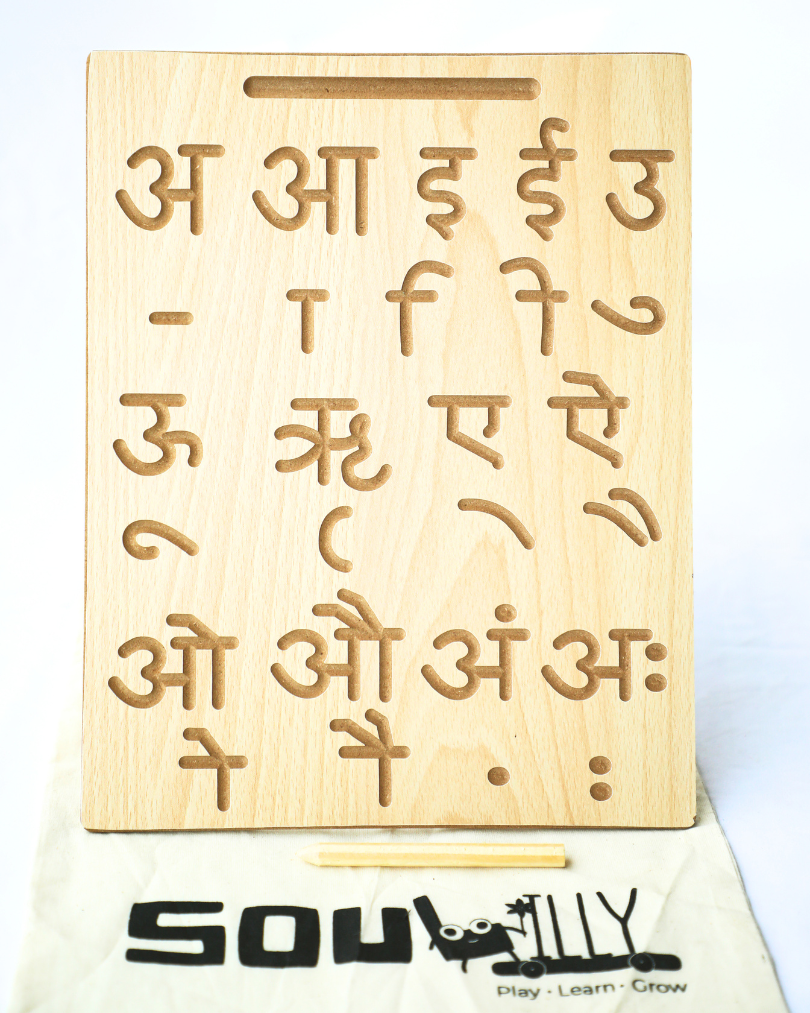 अ आ इ ई उ
- ा ि ी ु
ऊ ऋ ए ऐ
ू ृ े ै
ओ औ अं अः
ो ौ ं ः
SOULILLY
Play · Learn · Grow